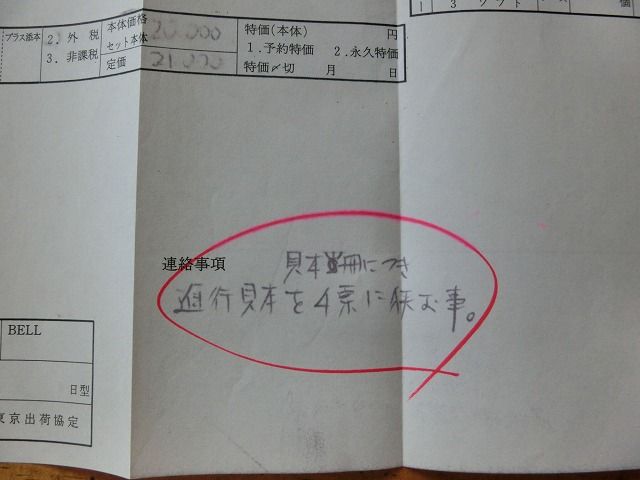 プラス添本
2. 外 税
3. 非課税
本体価格
セット本体
20.000
定価
21000
特価(本体) 円
1.予約特価 2.永久特価
特価〆切 月 日
1 3 ソフト 個
連絡事項
見本 冊につき
進行見本を4票に挟む事。
BELL
日型
東京出荷協定